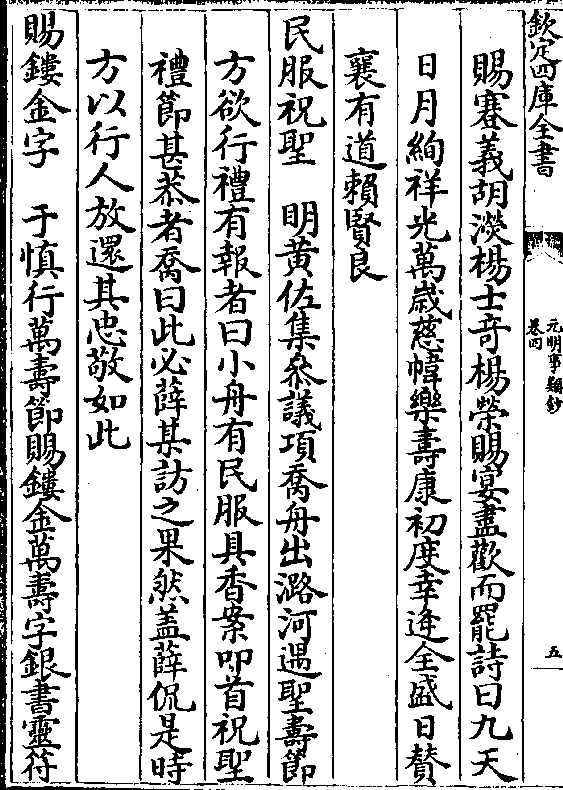 欽定四庫全書
元明事類鈔
卷四
五
賜蹇義胡濙楊士奇楊榮賜宴盡歡而罷詩曰九天
日月絢祥光萬歲慈幃樂壽康初度幸逢全盛日賛
襄有道賴賢良
民服祝聖　明黄佐集叅議項喬舟出潞河遇聖壽節
方欲行禮有報者曰小舟有民服具香案叩首祝聖
禮節甚恭者喬曰此必薛某訪之果然盖薛侃是時
方以行人放還其忠敬如此
賜鏤金字　于慎行萬壽節賜鏤金萬壽字銀書靈符